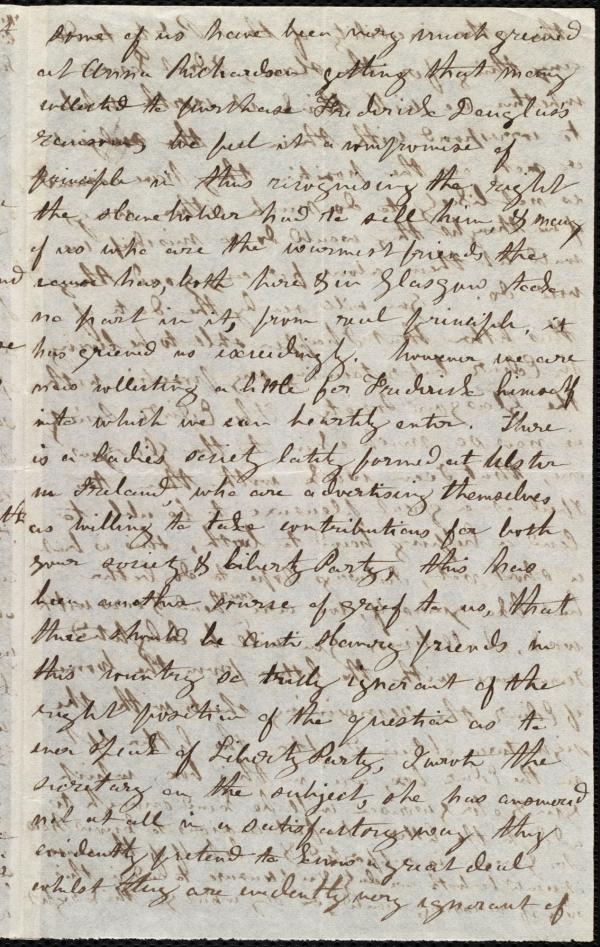 some of us have been very much grieved
at Anna Richardson getting that money
collected to purchase Frederick Douglass
ransom, we feel it a compromise of
principle in thus recognising the right
the slaveholder had to sell him, & many
of us who are the warmest friends the
cause has, both here & in Glasgow took
no part in it, from real principle, it
has grieved us exceedingly. however we are
now collecting a little for Frederick himself
into which we can heartily enter. There
is a Ladies society lately formed at Ulster
in Ireland, who are advertising themselves
as willing to take contributions for both
your society & Liberty Party, this has
been another source of grief to us, that
there should be Anti Slavery friends in
this country so truly ignorant of the
right position of the question as to
ever speak of Liberty Party, I wrote the
secretary on the subject, she has answered
not at all in a satisfactory way they
evidently pretend to know a great deal
whilst they are evidently very ignorant of